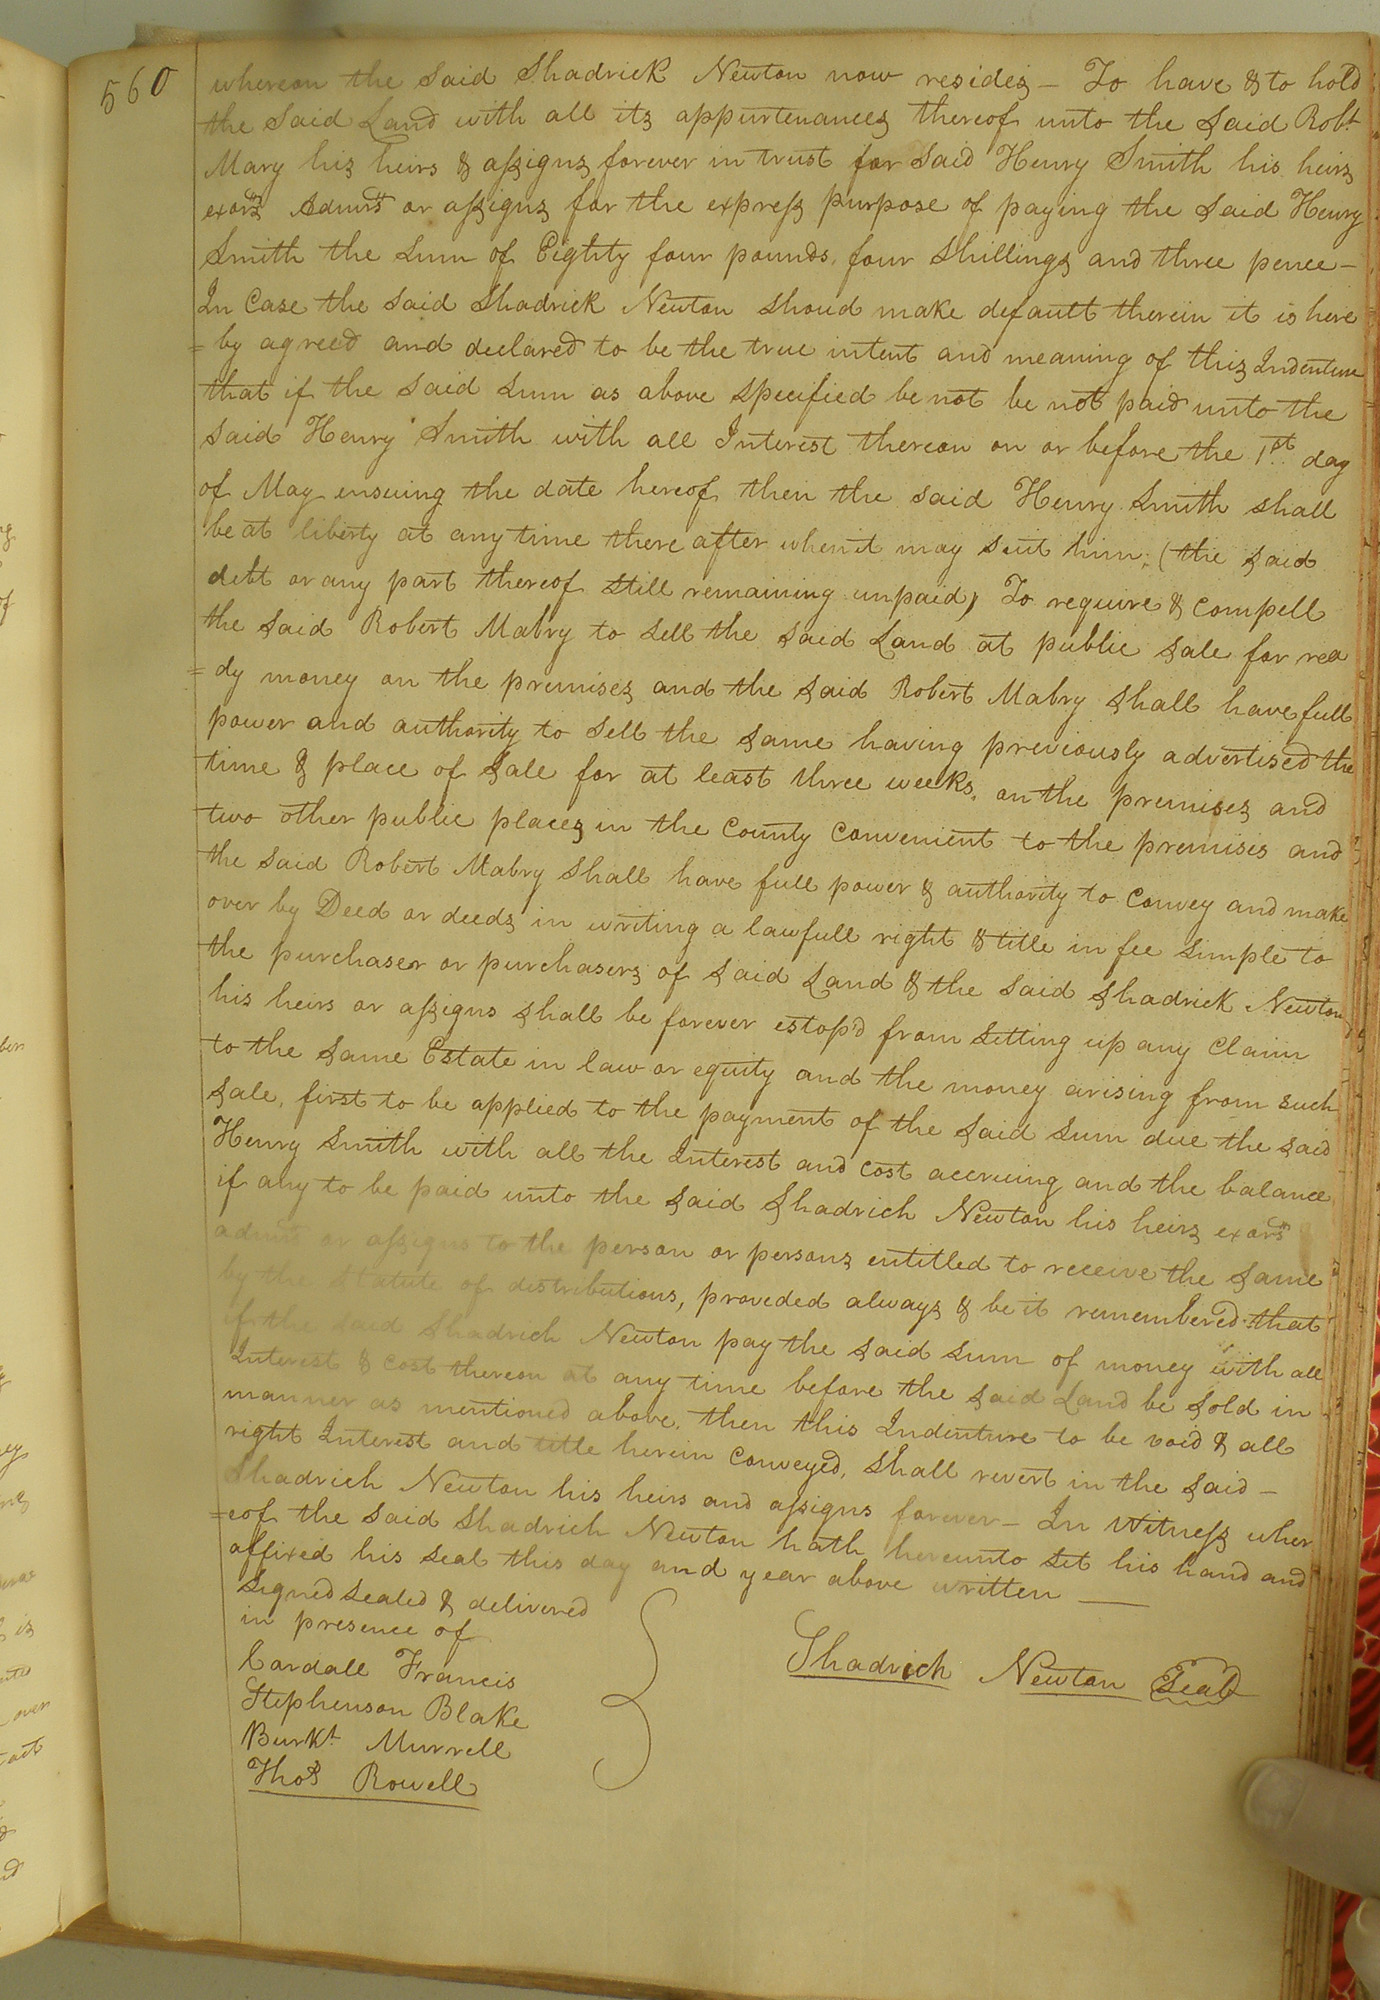 560
whereon the said Shadrick Newton now resides – To have & to hold
the said Land with all its appurtenances thereof unto the said Robt
Mary his heirs & assigns forever in trust for said Henry Smith his heirs
exors Admrs or assigns for the express purpose of paying the said Henry
Smith the Sum of Eighty four pounds, four Shillings and three pence –
In Case the said Shadrick Newton shoud make default therein it is here
= by agreed and declared to be the true intent and meaning of this Indenture
that if the said Sum as above specified be not be not paid unto the
said Henry Smith with all Interest thereon on or before the 1st day
of May ensuing the date hereof then the said Henry Smith shall
be at liberty at any time there after when it may suit him; (the said
debt or any part thereof still remaining unpaid) To require & compell
the said Robert Mabry to sell the said Land at public sale for rea
= dy money on the premises and the said Robert Mabry shall have full
power and authority to sell the same having previously advertised the
time & place of sale for at least three weeks, on the premises and
two other public places in the County Convenient to the premises and
the said Robert Mabry shall have full power & authority to Convey and make
over by Deed or deeds in writing a lawfull right & title in fee simple to
the purchaser or purchasers of said Land & the said Shadrick Newton
his heirs or assigns shall be forever estop'd from setting up any Claim
to the same Estate in law or equity and the money arising from such
sale, first to be applied to the payment of the said sum due the said
Henry Smith with all the Interest and Cost accruing and the balance
if any to be paid unto the said Shadrich Newton his heirs exors
admrs or assigns to the person or persons entitled to receive the same
by the statute of distributions, proveded always & be it remembered that
if the said Shadrich Newton pay the said sum of money with all
Interest & Cost thereon at any time before the said Land be sold in
manner as mentioned above, then this Indenture to be void & all
right Interest and title herein Conveyed, shall revert in the said –
Shadrich Newton his heirs and assigns forever – In Witness wher
=eof the said Shadrich Newton hath hereunto set his hand and
affixed his seal this day and year above written —
Signed sealed & delivered
in presence of
Cordall Francis
Stephenson Blake
Burkt Murrell
Thos Rowell
Shadrich Newton Seal